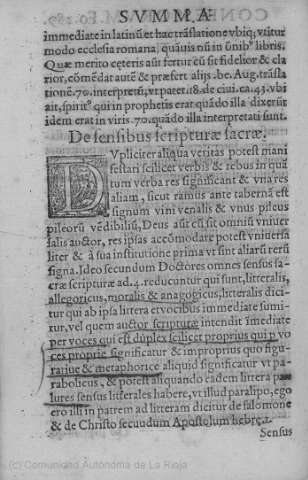 SVMMA
immediate in latinũ et hac trãslatione vbiq; vtitur
modo ecclesia romana, quãuis nũ in õnibꝰ libris.
Quæ merito cęteris aũt fertur eũ sit fidelior & cla
rior, cõmẽdat autẽ & præfert alijs.be. Aug. trãsla
tionẽ.70. interpretũ, vt patet.18. de ciui. ca.43. vbi
ait, spiritꝰ qui in prophetis erat quãdo illa dixerũt
idem erat in viris.70. quãdo illa interpretati sunt.
De sensibus scripturæ sacræ.
DVpliciter aliqua veritas potest mani
festari scilicet verbis & rebus in quã
tum verba res significant & vna res
aliam, sicut ramus ante tabernã est
signum vini venalis & vnus pileus
pileorũ vẽdibiliũ, Deus aũt cũ sit omniũ vniuer
salis auctor, res ipsas accõmodare potest vniuersa
liter & à sua institutione prima vt sint aliarũ rerũ
signa. Ideo secundum Doctores omnes sensus sa-
cræ scripturæ ad.4. reducuntur qui sunt, litteralis,
allegoricus, moralis & anagogicus, litteralis dici
tur qui ab ipsa littera etvocibus immediate sumi
tur, vel quem auctor scripturæ intendit ĩmediate
per voces qui est duplex scilicet proprius qui p vo
ces proprie significatur & improprius quo figu-
ratiue & metaphorice aliquid significatur vt pa-
rabolicus, & potest aliquando eadem littera p
lures sensus litterales habere, vt illud paralipo, ego
ero illi in patrem ad litteram dicitur de salomone
& de Christo secuudum Apostolum hebrę.1.
Sensus
(c) Comunidad Autónoma de La Rioja